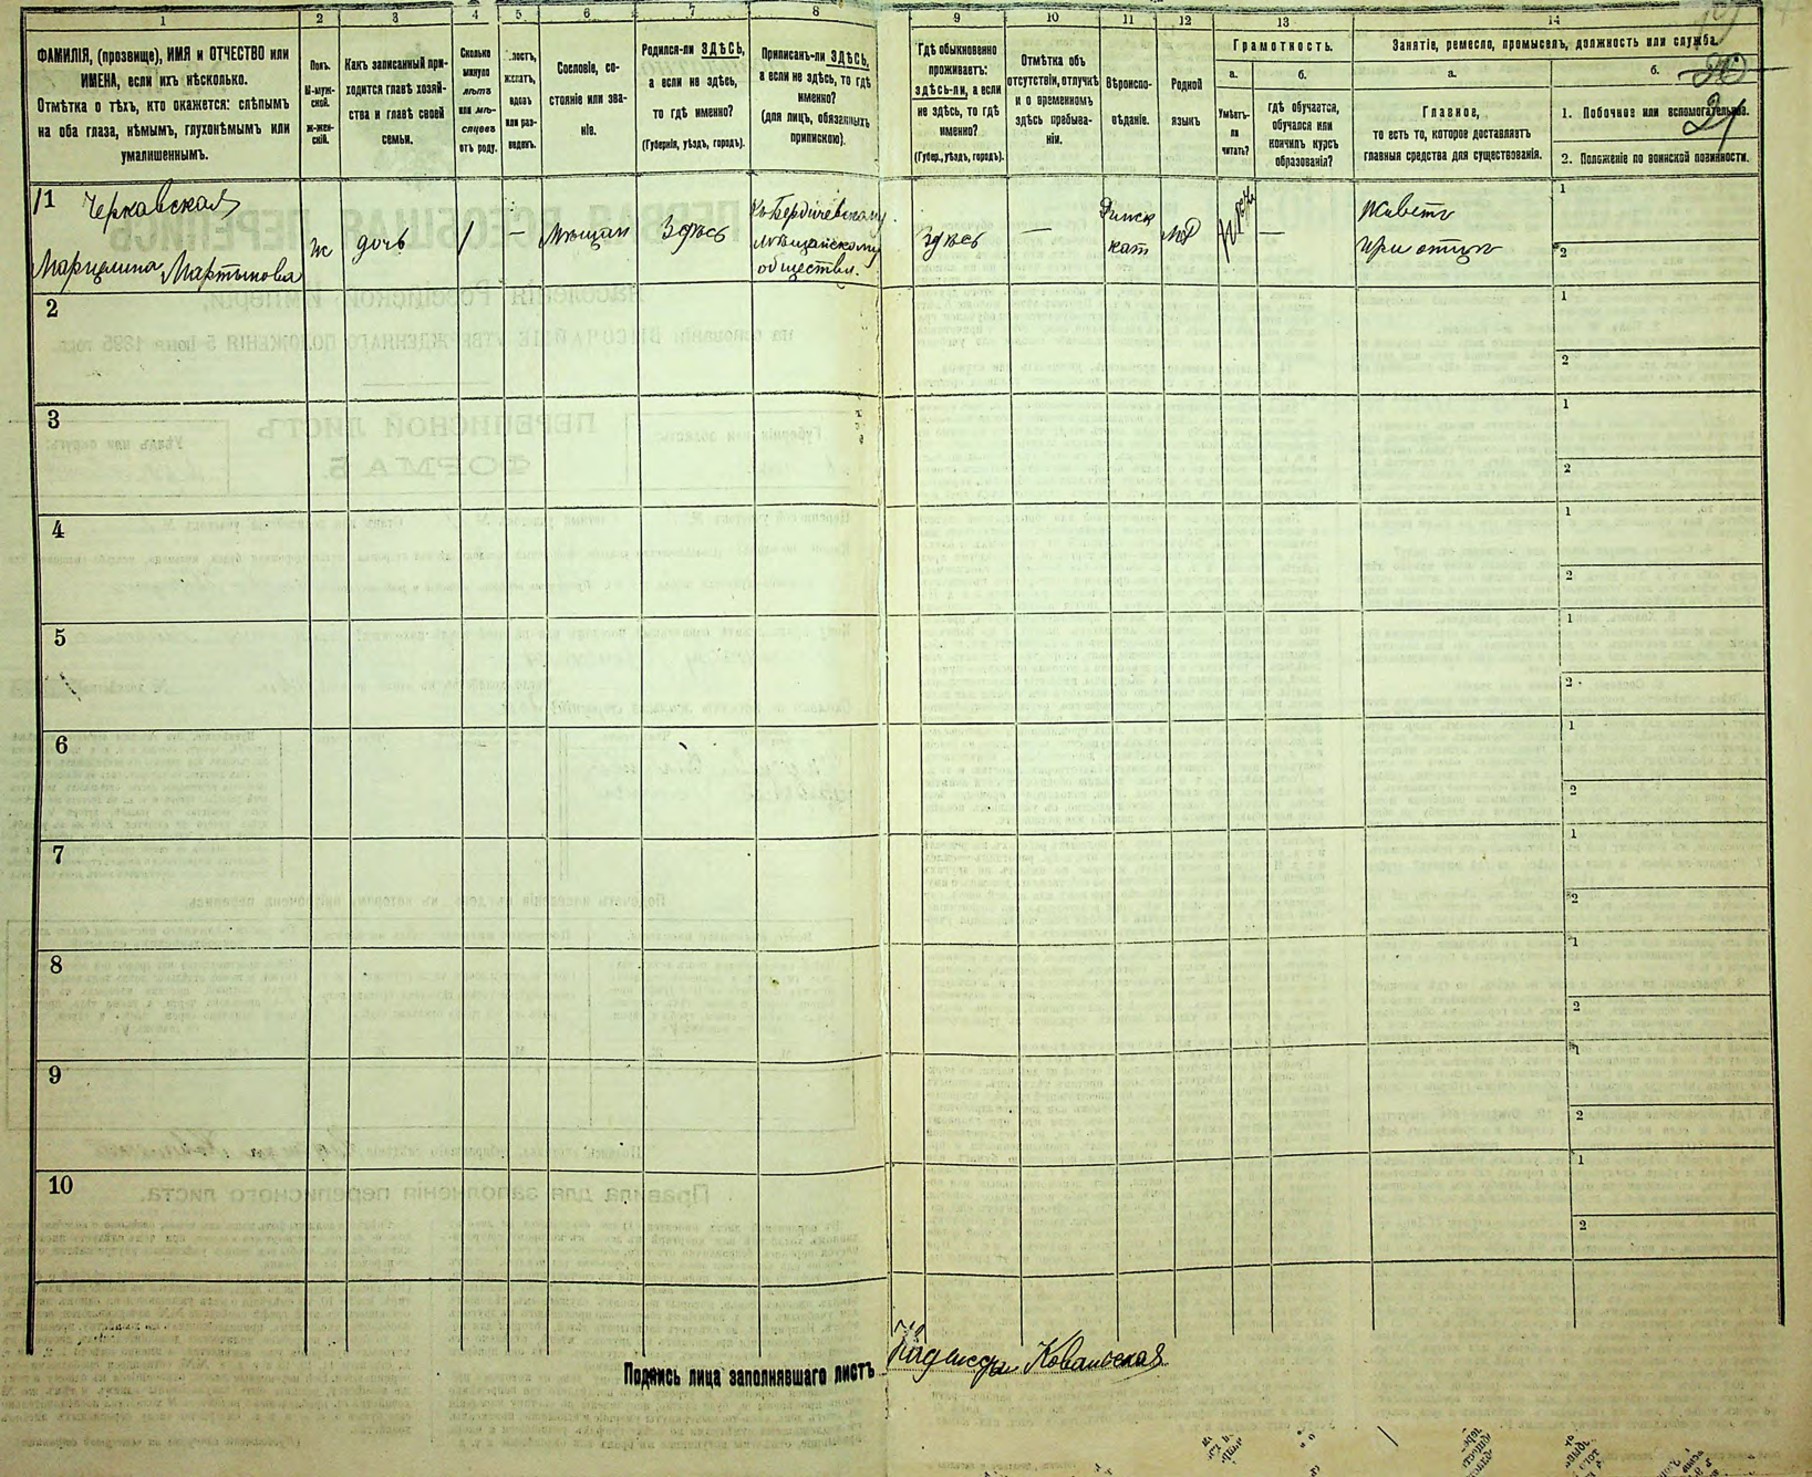 1 2 3 4 5 6 7 8 9 10 11 12 13 14
ФАМИЛІЯ, (прозвище), ИМЯ и ОТЧЕСТВО или
ИМЕНА, если ихъ нѣсколько.
Отмѣтка о тѣхъ, кто окажется: слѣпымъ
на оба глаза, нѣмымъ, глухонѣмымъ или
умалишеннымъ.
Полъ.
М-муж-
ской.
Ж-жен-
скій.
Какъ записанный при-
ходится главѣ хозяй-
ства и главѣ своей
семьи.
Сколько
минуло
лѣтъ
или мѣ-
сяцевъ
отъ роду.
лостъ,
женатъ,
вдовъ
или раз-
веденъ.
Сословіе, со-
стояніе или зва-
ніе.
Родился-ли ЗДѢСЬ,
а если не здѣсь,
то гдѣ именно?
(Губернія, уѣздъ, городъ).
Приписанъ-ли ЗДѢСЬ,
а если не здѣсь, то гдѣ
именно?
(для лицъ, обязанныхъ
припискою).
Гдѣ обыкновенно
проживаетъ:
здѣсь-ли, а если
не здѣсь, то гдѣ
именно?
(Губер., уѣздъ, городъ).
Отмѣтка объ
отсутствіи, отлучкѣ
и о временномъ
здѣсь пребыва-
ніи.
Вѣроиспо-
вѣданіе.
Родной
языкъ
Грамотность.
а. б.
Умѣетъ-
ли
читать?
гдѣ обучается,
обучался или
кончилъ курсъ
образованія?
Занятіе, ремесло, промыселъ, должность или служба.
а. б.
Главное,
то есть то, которое доставляетъ
главныя средства для существованія.
1. Побочное или вспомогательное.
2. Положеніе по воинской повинности.
20
21
11 Черкавская
Марцелина Мартынова
ж
дочь
1
—
Мѣщан
Здѣсь
Къ Бердичевскому
мѣщанскому
обществу.
Здѣсь
—
Римск
кат
—
Живетъ
при отцѣ
1
2
2
1
2
3
1
2
4
1
2
5
1
2
6
1
2
7
1
2
8
1
2
9
1
2
10
1
2
Подпись лица заполнявшаго листъ Ковальская